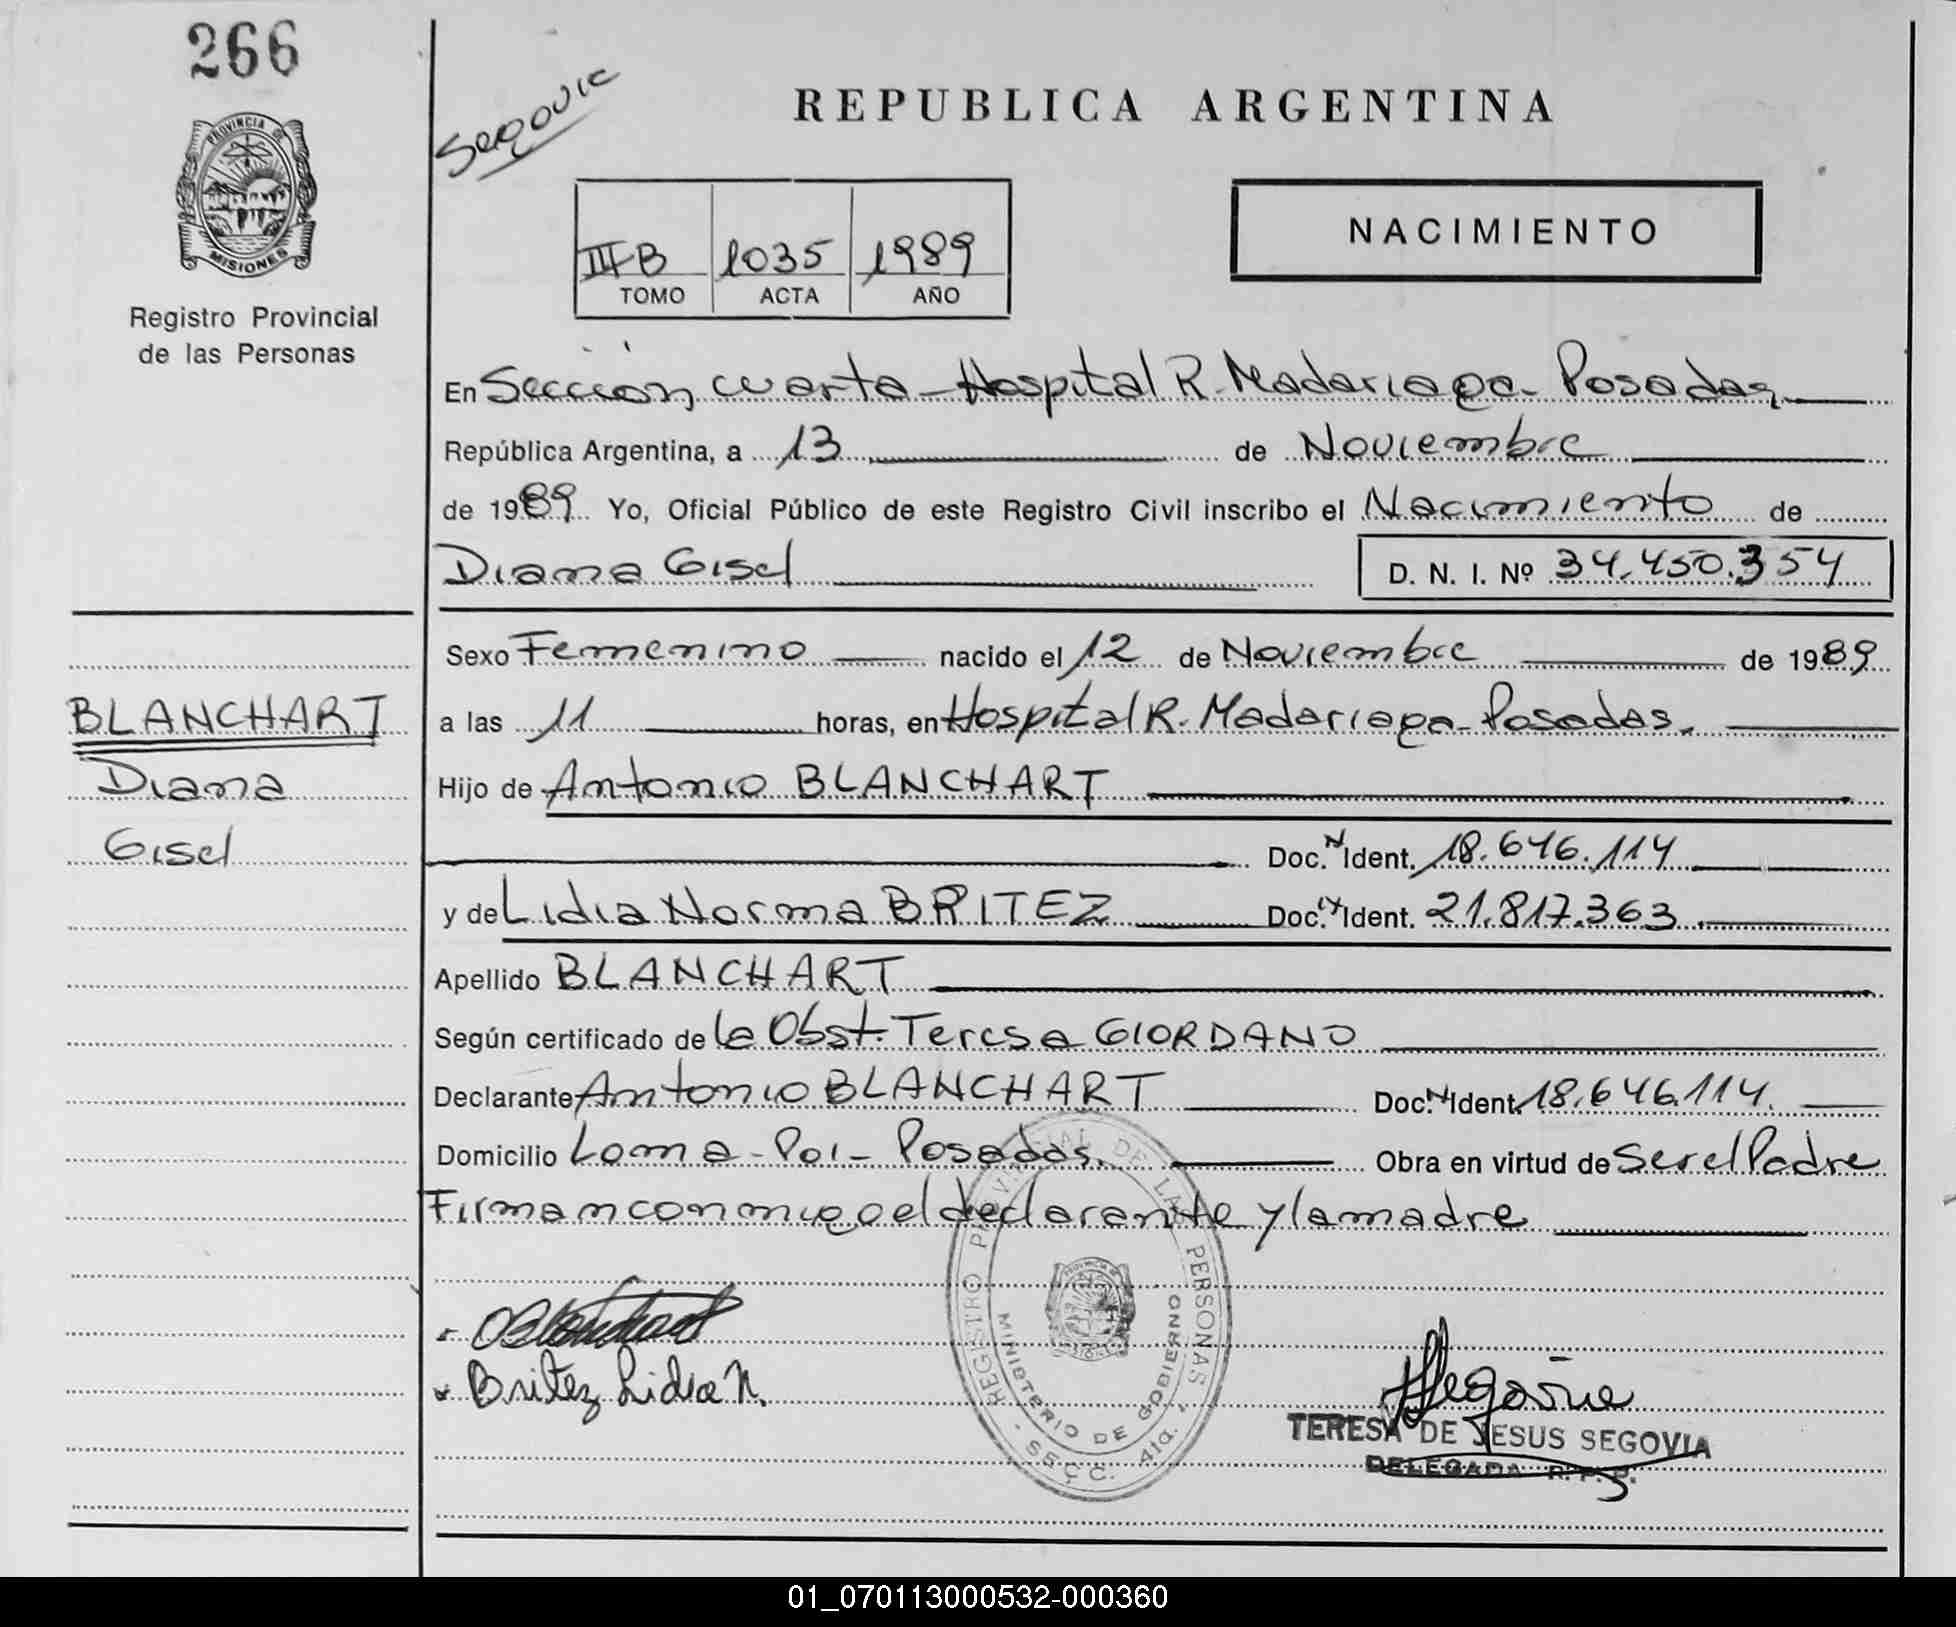 266
Segovia
REPUBLICA ARGENTINA
PROVINCIA DE
MISIONES
Registro Provincial
de las Personas
III B 1035 1989
TOMO ACTA AÑO
NACIMIENTO
En Sección cuarta - Hospital R. Madariaga - Posadas
República Argentina, a 13 de Noviembre
de 1989 Yo, Oficial Público de este Registro Civil inscribo el Nacimiento de
Diana Gisel D. N. I. Nº 34.450.354
Sexo Femenino nacido el 12 de Noviembre de 1989
BLANCHART
Diana
Gisel
a las 11 horas, en Hospital R. Madariaga - Posadas.
Hijo de Antonio BLANCHART
Doc. N Ident. 18.646.114
y de Lidia Norma BRITEZ Doc. N Ident. 21.817.363
Apellido BLANCHART
Según certificado de la Obst. Teresa GIORDANO
Declarante Antonio BLANCHART Doc. N Ident. 18.646.114.
Domicilio Loma - Poi - Posadas. Obra en virtud de Ser el Padre
Firman conmigo el declarante y la madre
Britez Lidia N.
REGISTRO PROVINCIAL DE LAS PERSONAS
MINISTERIO DE GOBIERNO
SECC. 4ta.
Segovia
TERESA DE JESUS SEGOVIA
DELEGADA R. P. P.
01_070113000532-000360